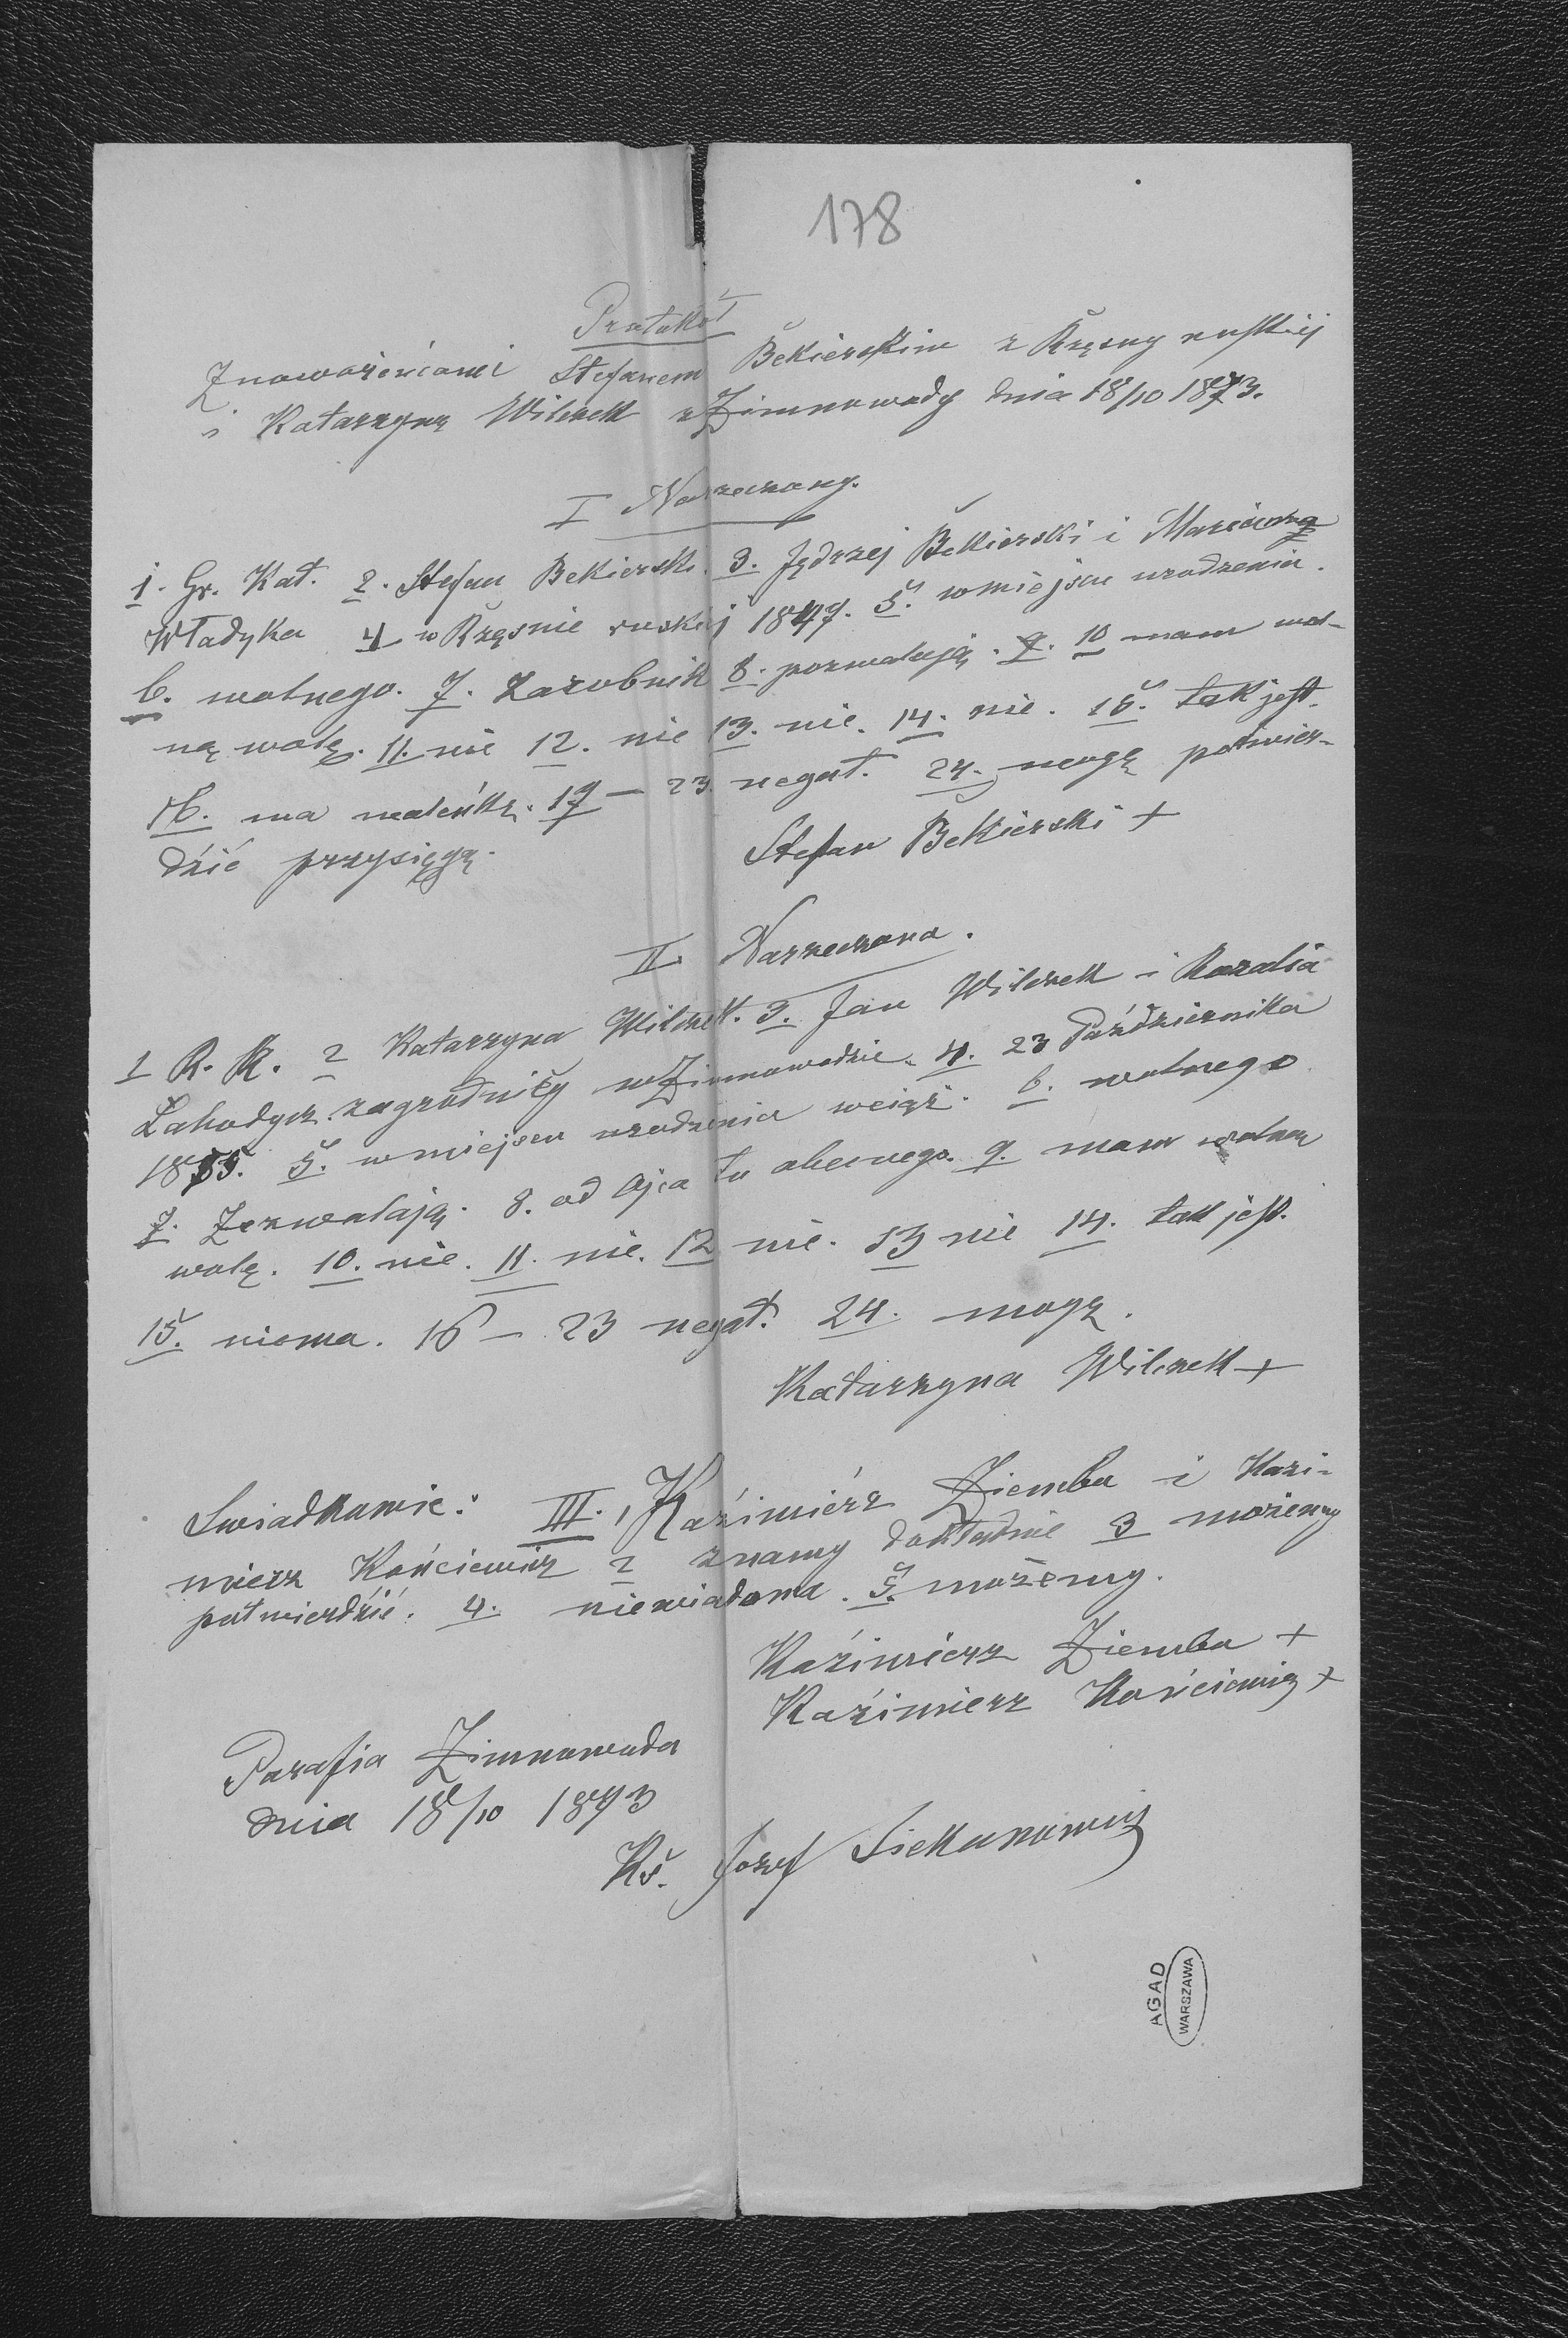 178
Protokół
Z nowożeńcami Stefanem Bekierskim z Rzęsny ruskiej
i Katarzyną Wilczek z Zimnowody dnia 18/10 1873.
I Narzeczony.
1. Gr. Kat. 2. Stefan Bekierski. 3. Jędrzej Bekierski i Marianna
Władyka 4 w Rzęsnie ruskiej 1847. 5. w miejscu urodzenia.
6. wolnego. 7. Zarobnik 8. pozwalają. 9. 10 mam wol-
ną wolę. 11. nie 12. nie 13. nie. 14. nie. 15. tak jest.
16. ma metrykę. 17 – 23 negat. 24. mogę potwier-
dzić przysięgą.
Stefan Bekierski +
II. Narzeczona.
1 R. K. 2 Katarzyna Wilczek. 3. Jan Wilczek i Rozalia
Zagrodnicy w Zimnowodzie. 4. 23 Października
1855. 5. w miejscu urodzenia wciąż. 6. wolnego
7. Zezwalają. 8. od Ojca tu obecnego. 9. mam wolną
wolę. 10. nie. 11. nie. 12 nie. 13 nie 14. tak jest.
15. niema. 16 – 23 negat. 24. mogę.
Katarzyna Wilczek +
Swiadkowie: III. 1, Kaźimierz Ziemba i Kazi-
mierz Kościewicz 2 znamy dokładnie 3 możemy
potwierdzić. 4. niewiadoma. 5. możemy.
Kaźimierz Ziemba +
Kaźimierz Kościewicz +
Parafia Zimnowoda
dnia 18/10 1873
Ks. Jozef
AGAD
WARSZAWA